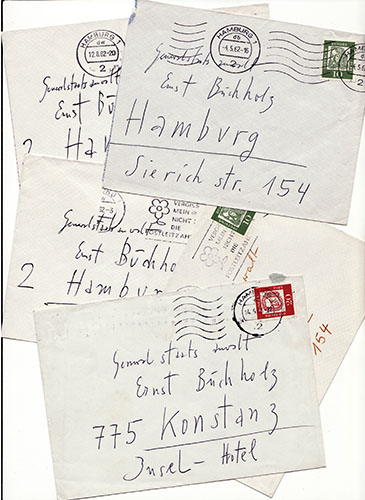 HAMBURG 1
12.8.62-20
2
Generalstaatsanwalt
Ernst Bü
2 Ha
HAMBURG 1
-4.5.62-16
2
10
Generalstaatsanwalt
Ernst Büchholz
Hamburg
Sierichstr. 154
VERGISS
MEIN
NICHT:
DIE
Generalstaatsanwalt
Ernst Büchho
2 Hambur
10
VERGISS
MEIN
NICHT
DIE
POSTLEITZAHL
walt
154
HAM
2
20
Generalstaatsanwalt
Ernst Büchholz
775 Konstanz
Insel-Hotel